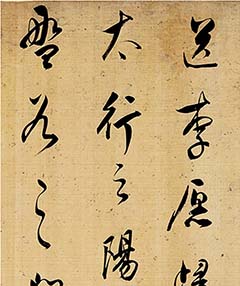 送李愿
太行之陽
盤谷之